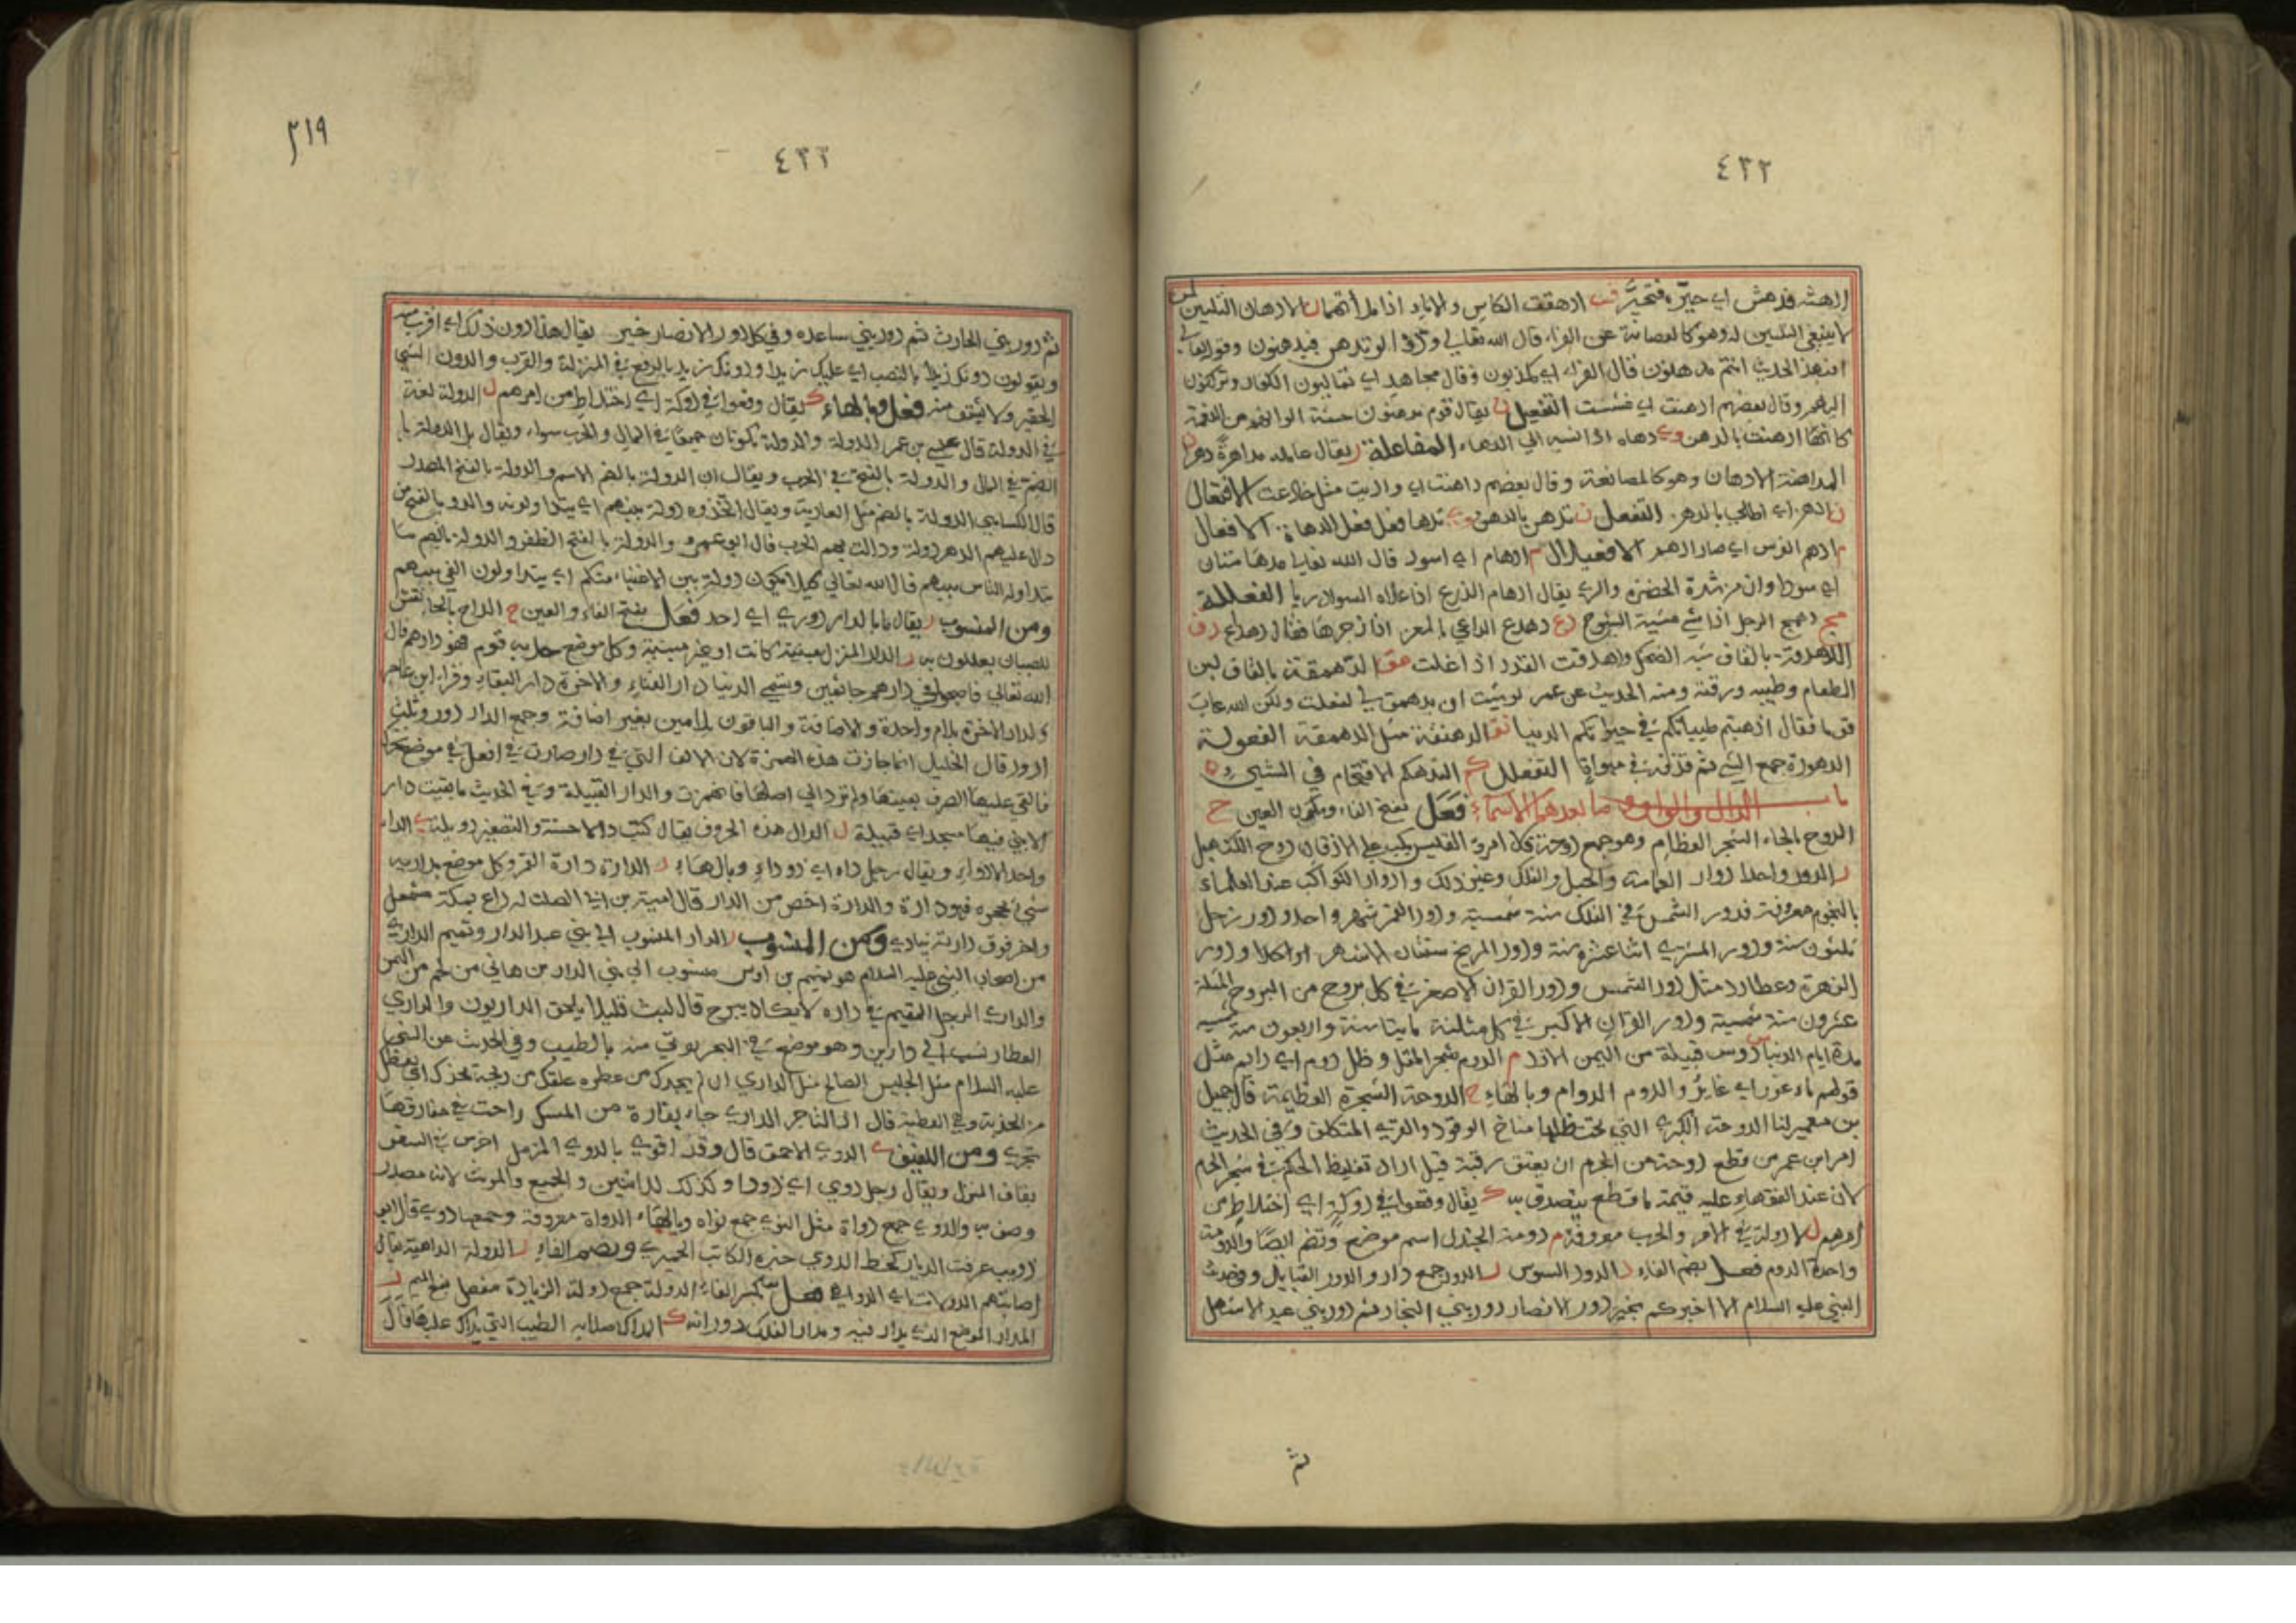 ٤٣٢
ادهشه فدهش اي حيّره فتحيَّر ق ادهقت الكاس والاناء اذا ملأتهما ن الادهان التليين لمن
لا ينبغي التليين له وهو كالمصانعة عن الفراء قال الله تعالى ودّوا لو تدهن فيدهنون وقوله تعالى
افبهذا الحديث انتم مدهنون قال الفراء اي مكذبون وقال مجاهد اي تمالئون الكفار وتركنون
اليهم وقال بعضهم ادهنت اي غششت التفعيل ن يقال قوم مدهنون حسنة الوانهم من النعمة
كانها ادهنت بالدهن وي دهاه اذا نسبه الى الدهاء المفاعلة ر يقال عامله مداهرةً دهر ن
المداهنة الادهان وهو كالمصانعة وقال بعضهم داهنت اي واريت مثل خادعت الافتعال
ن ادهن اي اطلى بالدهن التفعل ن تدهن بالدهن وي تدها فعل فعل الدهاة الافعلال
م ادهم الفرس اي صار ادهم الافعيلال م ادهام اي اسود قال الله تعالى مدهامتان
اي سوداوان من شدة الخضرة والري يقال ادهام الذرع اذا علاه السواد ريا الفعللة
مج دهمج الرجل اذا مشى مشية الشيوخ دع دهدع الداعي بالمعز اذا زجرها فقال دهداع دق
الدهدقة بالقاف شبه الضحك ودهدقت القدر اذا غلت مق الدهمقة بالقاف لين
الطعام وطيبه ورقته ومنه الحديث عن عمر لو شئت ان يدهمق لي لفعلت ولكن الله عاب
قوما فقال اذهبتم طيباتكم في حياتكم الدنيا نق الدهنقة مثل الدهمقة الفعولة
الدهورة جمع الشي ثم قذفه في مهواة التفعلل كم التدهكم الاقتحام في الشيء
باب الدال والواو وما بعدهما الاسماء فَعْل بفتح الفاء وسكون العين ح
الدوح بالحاء الشجر العظام وهو جمع دوحة قال امرؤ القيس يكب على الاذقان دوح الكنهبل
ر الدور واحد ادوار العمامة والحبل والفلك وغير ذلك وادوار الكواكب عند العلماء
بالنجوم معروفة فدور الشمس في الفلك سنة شمسية ودور القمر شهر واحد ودور زحل
ثلثون سنة ودور المشتري اثنا عشرة سنة ودور المريخ سنتان الا شهر ودور
الزهرة وعطارد مثل دور الشمس ودور القران الاصغر في كل بروج من البروج المثلثة
عشرون سنة شمسية ودور القران الاكبر في كل مثلثة مايتا سنة واربعون سنة شمسية
مدة ايام الدنيا س دوس قبيلة من اليمن الازد م الدوم شجر المقل وظل دوم اي دايم مثل
قولهم ماء غور اي غاير والدوم الدوام وبالهاء ح الدوحة الشجرة العظيمة قال جميل
بن معمر لنا الدوحة الكبرى التي تحت ظلها مناخ الوقود والقرى المتكلف وفي الحديث
امر ابن عمر من قطع دوحة من الحرم ان يعتق رقبة قيل اراد تغليظ الحكم في شجر الحرم
لان عند الفقهاء عليه قيمة ما قطع يتصدق به ك يقال وقعوا في دوكة اي اختلاط من
امرهم ل الدولة في الامر والحرب معروفة م دومة الجندل اسم موضع وتضم ايضًا والدومة
واحدة الدوم فعل بضم الفاء د الدود السوس ر الدور جمع دار والدور القبايل وفي حديث
النبي عليه السلام الا اخبركم بخير دور الانصار دور بني النجار ثم دور بني عبد الاشهل
ثم
٣١٩
٤٣٣
ثم دور بني الحارث ثم دور بني ساعده وفي كل دور الانصار خير يقال هذا دون ذلك اي اقرب منه
ويقولون دونك زيدًا بالنصب اي عليك زيدا ودونك زيد بالرفع في المنزلة والقرب والدون الشي
الحقير ولا يشتق منه فعل وبالهاء ك يقال وقعوا في دوكة اي اختلاط من امرهم ل الدولة لغة
في الدولة قال عيسى بن عمر الدولة والدولة تكونان جميعًا في المال والحرب سواء ويقال بل الدولة با
الضم في المال والدولة بالفتح في الحرب ويقال ان الدولة بالضم الاسم والدولة بالفتح المصدر
قال الكسايي الدولة بالضم مثل العارية ويقال اتخذوه دولة بينهم اي يتداولونه والدولة بالفتح من
دال عليهم الدهر دولة ودالت بهم الحرب قال ابو عمرو والدولة بالفتح الظفر والدولة بالضم ما
يتداوله الناس بينهم قال الله تعالى كيلا يكون دولة بين الاغنياء منكم اي يتداولون الفي بينهم
ومن المنسوب ر يقال ما بالدار دوري اي احد فَعَل بفتح الفاء والعين ح الداح بالحاء نقش
للصبيان يعللون به ر الدار المنزل مبنية كانت او غير مبنية وكل موضع حل به قوم فهو دارهم قال
الله تعالى فاصبحوا في دارهم جاثمين وتسمى الدنيا دار الفناء والاخرة دار البقاء وقرا ابن عامر
ولدار الاخرة بلام واحدة والاضافة والباقون بلامين بغير اضافة وجمع الدار دور وثلث
ادور قال الخليل انما جازت هذه الهمزة لان الالف التي في دار صارت في افعل في موضع تحرك
فالقي عليها الصرف بعينها ولم ترد الى اصلها فانهمزت والدار القبيلة وفي الحديث ما بقيت دار
الا بني فيها مسجد اي قبيلة ل الدال هذه الحروف يقال كتب دالا حسنة والتصغير دويلة ي الداء
واحد الادواء ويقال رجل داء اي ذو داء وبالهاء ر الدارة دارة القمر وكل موضع يدار به
شيء يحجره فهو دارة والدارة اخص من الدار قال امية بن ابي الصلت له داع بمكة مشمعل
واخر فوق دارته ينادي ومن المنسوب ر الداري المنسوب الى بني عبد الدار وتميم الداري
من اصحاب النبي عليه السلام هو تميم بن اوس منسوب الى بني الدار بن هاني من لخم من اليمن
والداري الرجل المقيم في داره لا يكاد يبرح قال لبث قليلا يلحق الداريون والداري
العطار نسب الى دارين وهو موضع في البحر يوتى منه بالطيب وفي الحديث عن النبي
عليه السلام مثل الجليس الصالح مثل الداري ان لم يحذك من عطره علقك من ريحه يحذك اي يعطك
من الحذية وهي العطية قال اذا التاجر الداري جاء بفارة من المسك راحت في مفارقها
تجري ومن اللفيف ي الدوى الاحمق قال وقد اقوي بالدوي المزمل اخرس في السفر
بقاق المنزل ويقال رجل دوى اي ذو داء وكذلك للاثنين والجميع والمونث لانه مصدر
وصف به والدوى جمع دواة مثل النوى جمع نواه وبالهاء الدواة معروفة وجمعها دوى قال ابو
ذويب عرفت الديار كخط الدوي حبره الكاتب الحميري وبضم الفاء ل الدولة الداهية يقال
اصابتهم الدولات اي الدواهي فعل بكسر الفاء ل الدولة جمع دولة الزيادة مفعل بفتح الميم ر
المدار الموضع الذي يدار فيه ومدار الفلك دورانه ك المداك صلاية الطيب التي يداك عليها قال